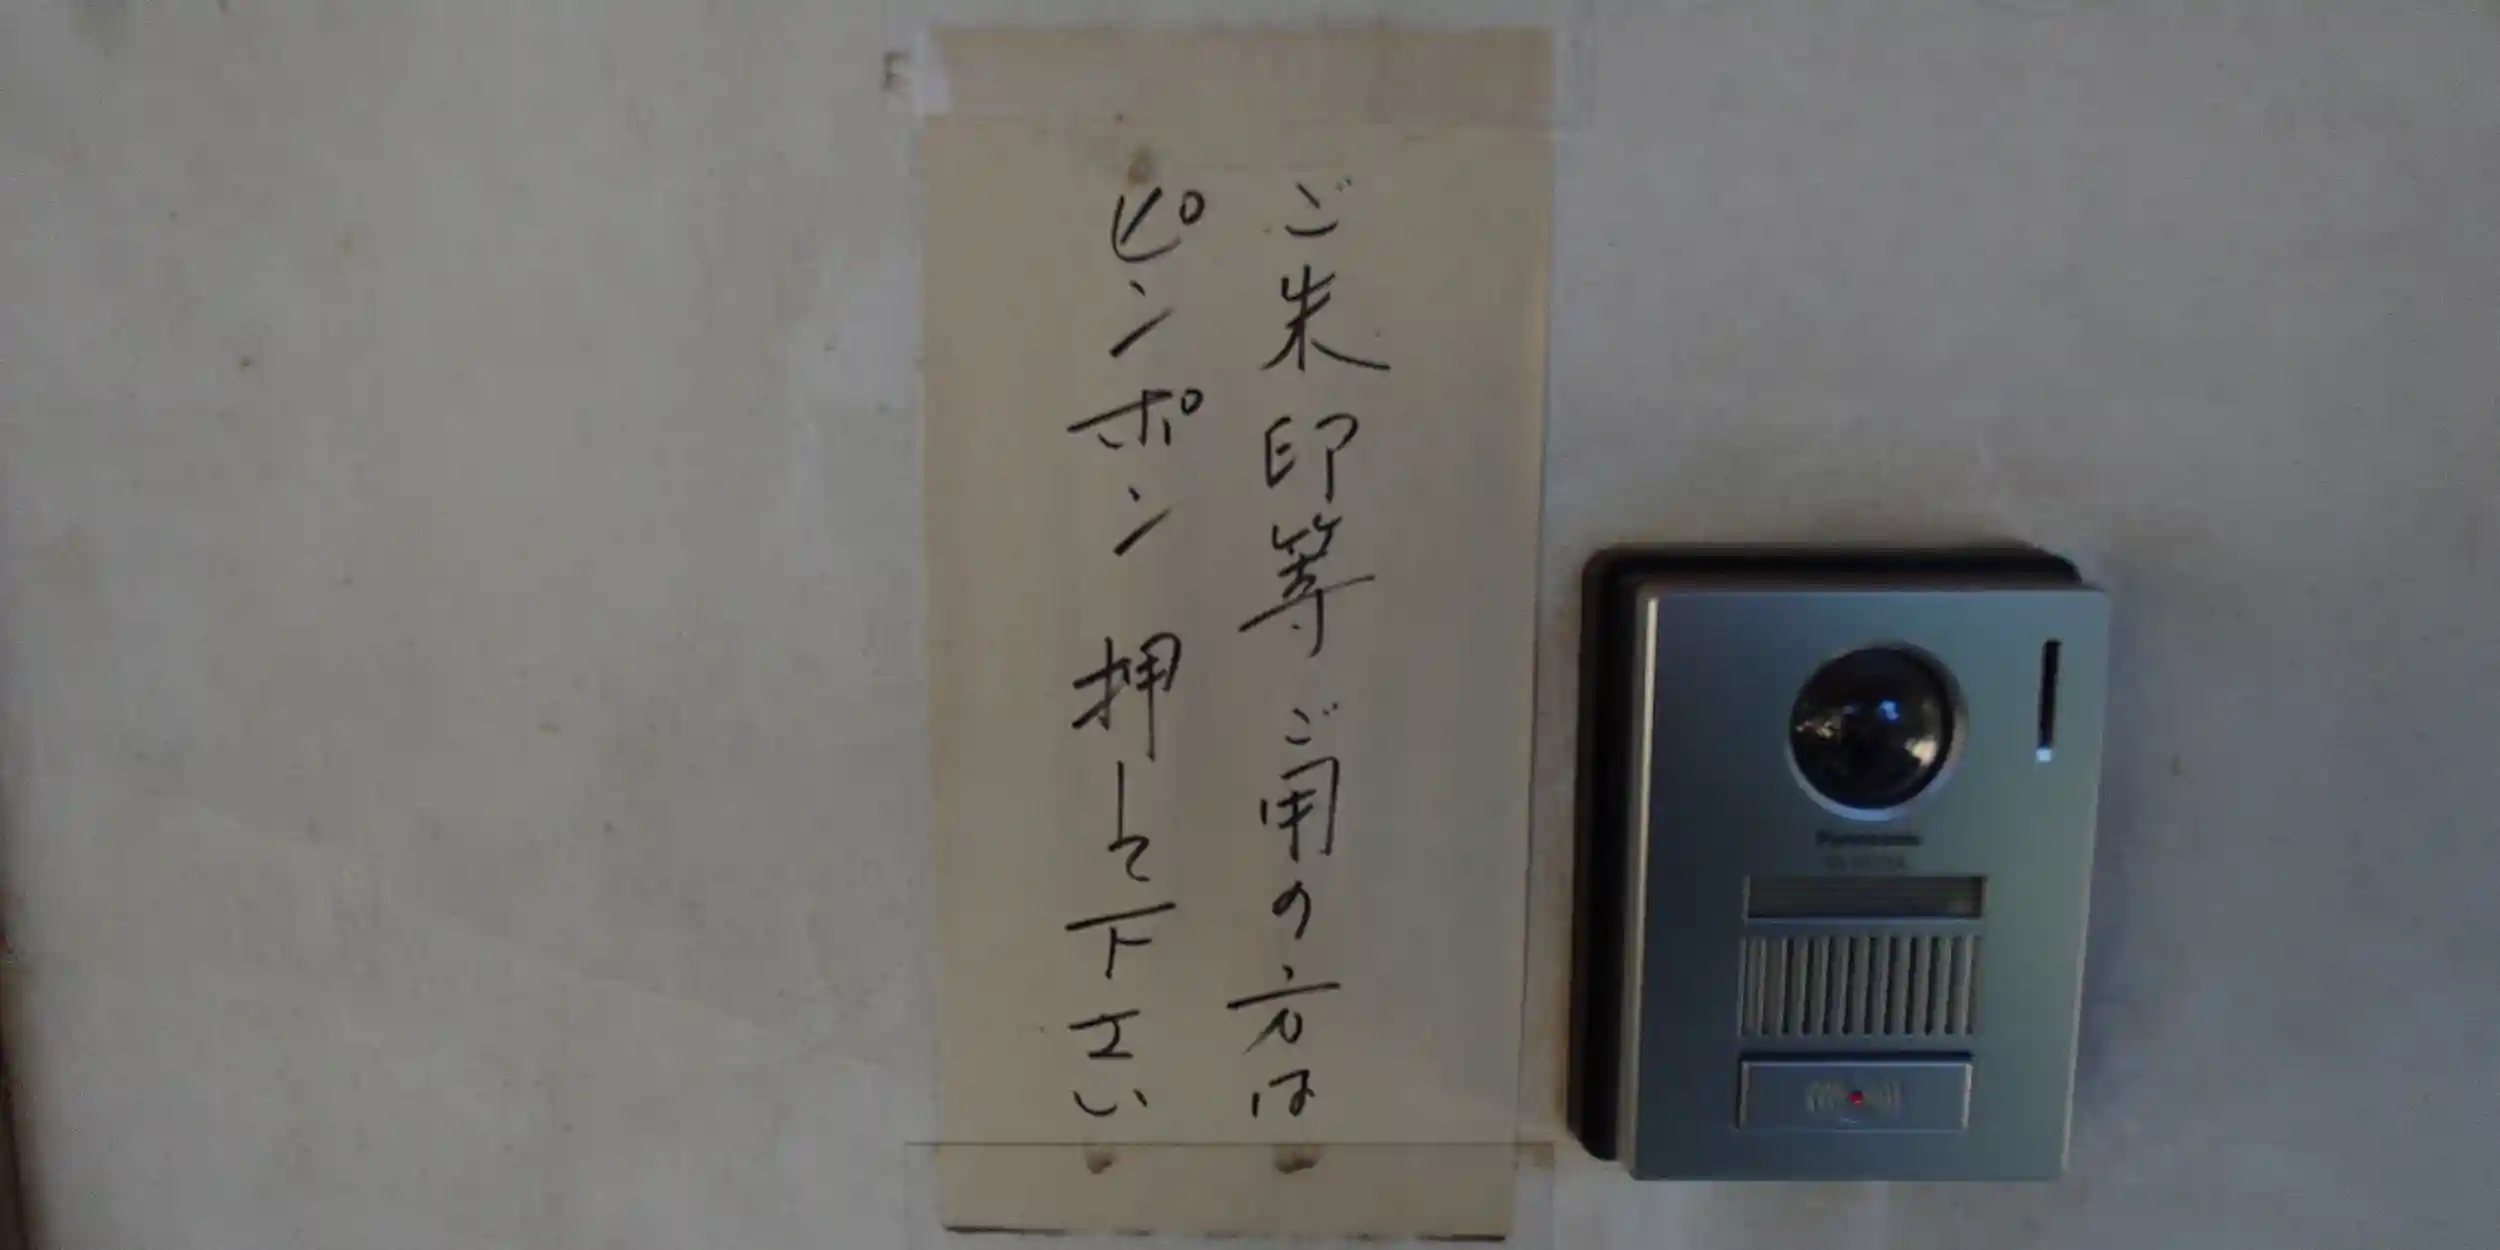 ご朱印等ご用の方は
ピンポン押して下さい
Panasonic